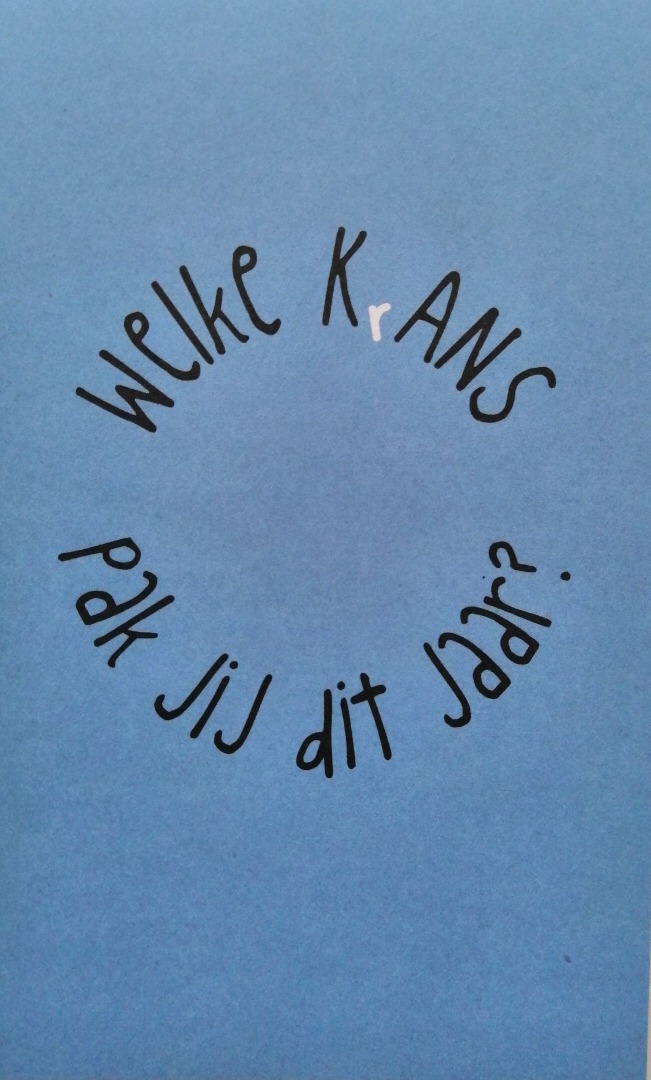 welke KrANS
pak jij dit jaar?